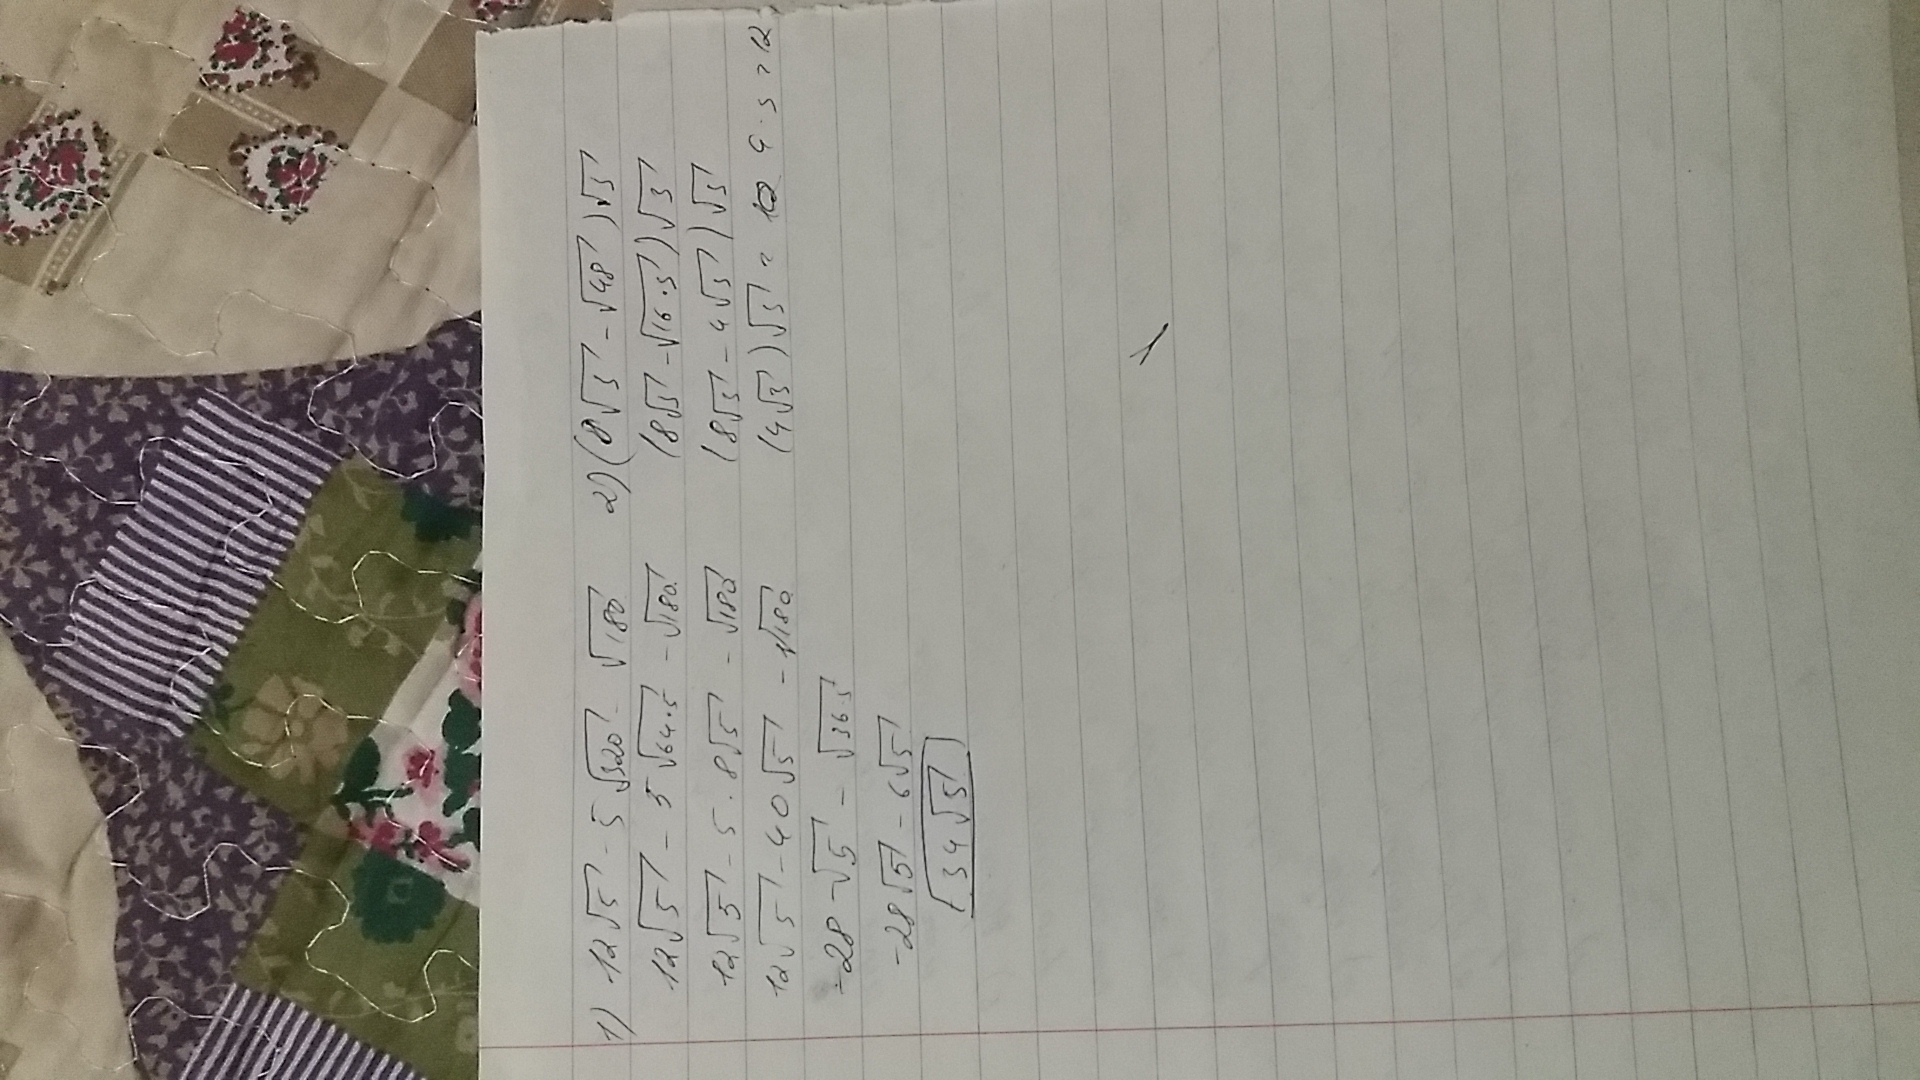 1) 12√5 - 5√320 - √180
12√5 - 5√64·5 - √180
12√5 - 5·8√5 - √180
12√5 - 40√5 - √180
-28-√5 - √36·5
-28√5 - 6√5
34√5
2) (8√3 - √48)√3
(8√3 - √16·3)√3
(8√3 - 4√3)√3
(4√3)√3 = 4·3 = 12